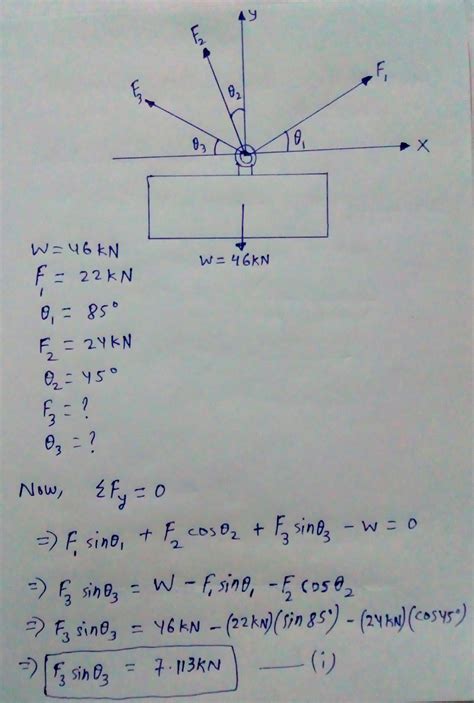 y
F₂
F₁
F₃
θ₂
θ₃
θ₁
X
W = 46KN
W = 46 KN
F₁ = 22 KN
θ₁ = 85°
F₂ = 24 KN
θ₂ = 45°
F₃ = ?
θ₃ = ?
Now, ΣFy = 0
=> F₁ sinθ₁ + F₂ cosθ₂ + F₃ sinθ₃ - W = 0
=> F₃ sinθ₃ = W - F₁ sinθ₁ - F₂ cosθ₂
=> F₃ sinθ₃ = 46KN - (22KN)(sin 85°) - (24KN)(cos45°)
=> F₃ sinθ₃ = 7.113KN —— (i)